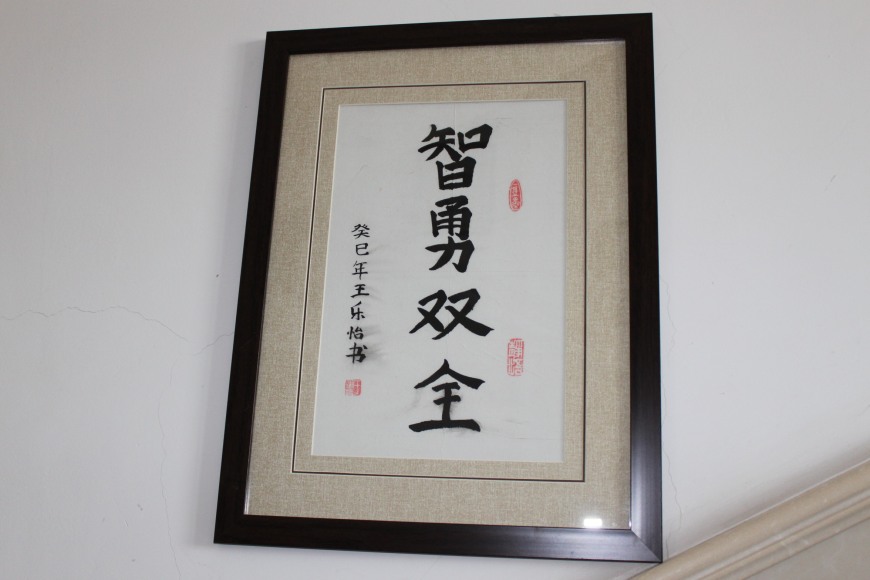 智勇双全
癸巳年王乐怡书